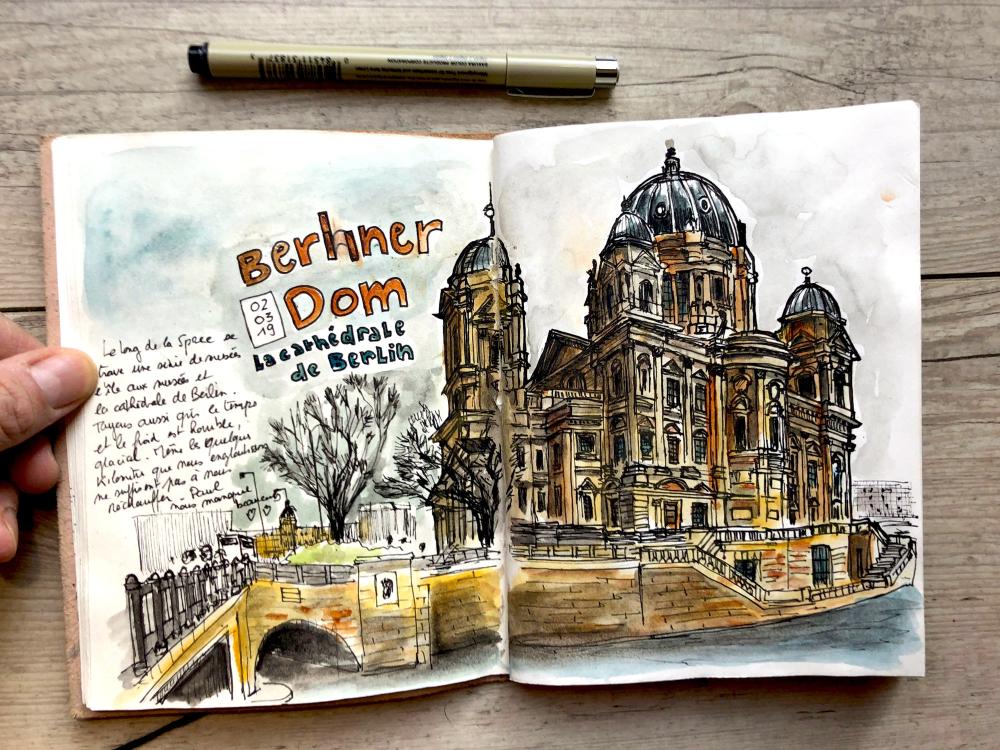 Berliner
Dom
02
03
19
la cathédrale
de Berlin
Le long de la Spree se
trouve une série de musées
l'île aux musées et
la cathédrale de Berlin.
aussi gris le temps
et le froid est horrible,
glacial. Même les quelques
kilomètres que nous
ne suffisent pas à nous
réchauffer. Paul
nous manque
SAKURA COLOR PRODUCTS CORPORATION